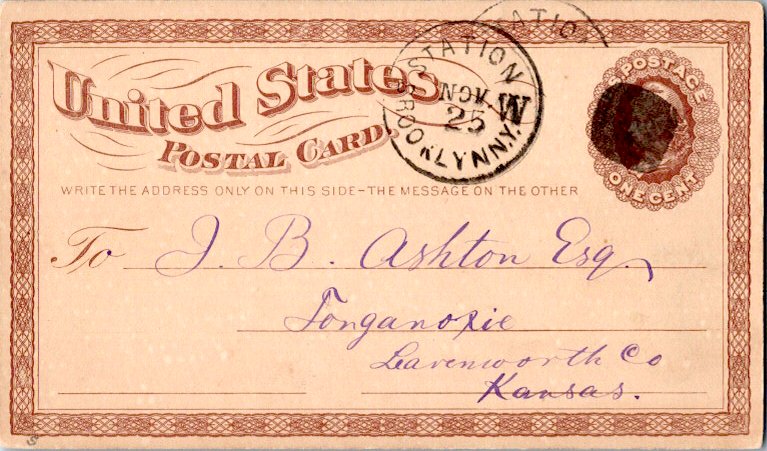 United States
POSTAL CARD.
WRITE THE ADDRESS ONLY ON THIS SIDE-THE MESSAGE ON THE OTHER
STATION
STATION
NOV. W
25
BROOKLYN N.Y.
POSTAGE
ONE CENT
To J. B. Ashton Esq.
Tonganoxie
Leavenworth Co
Kansas.